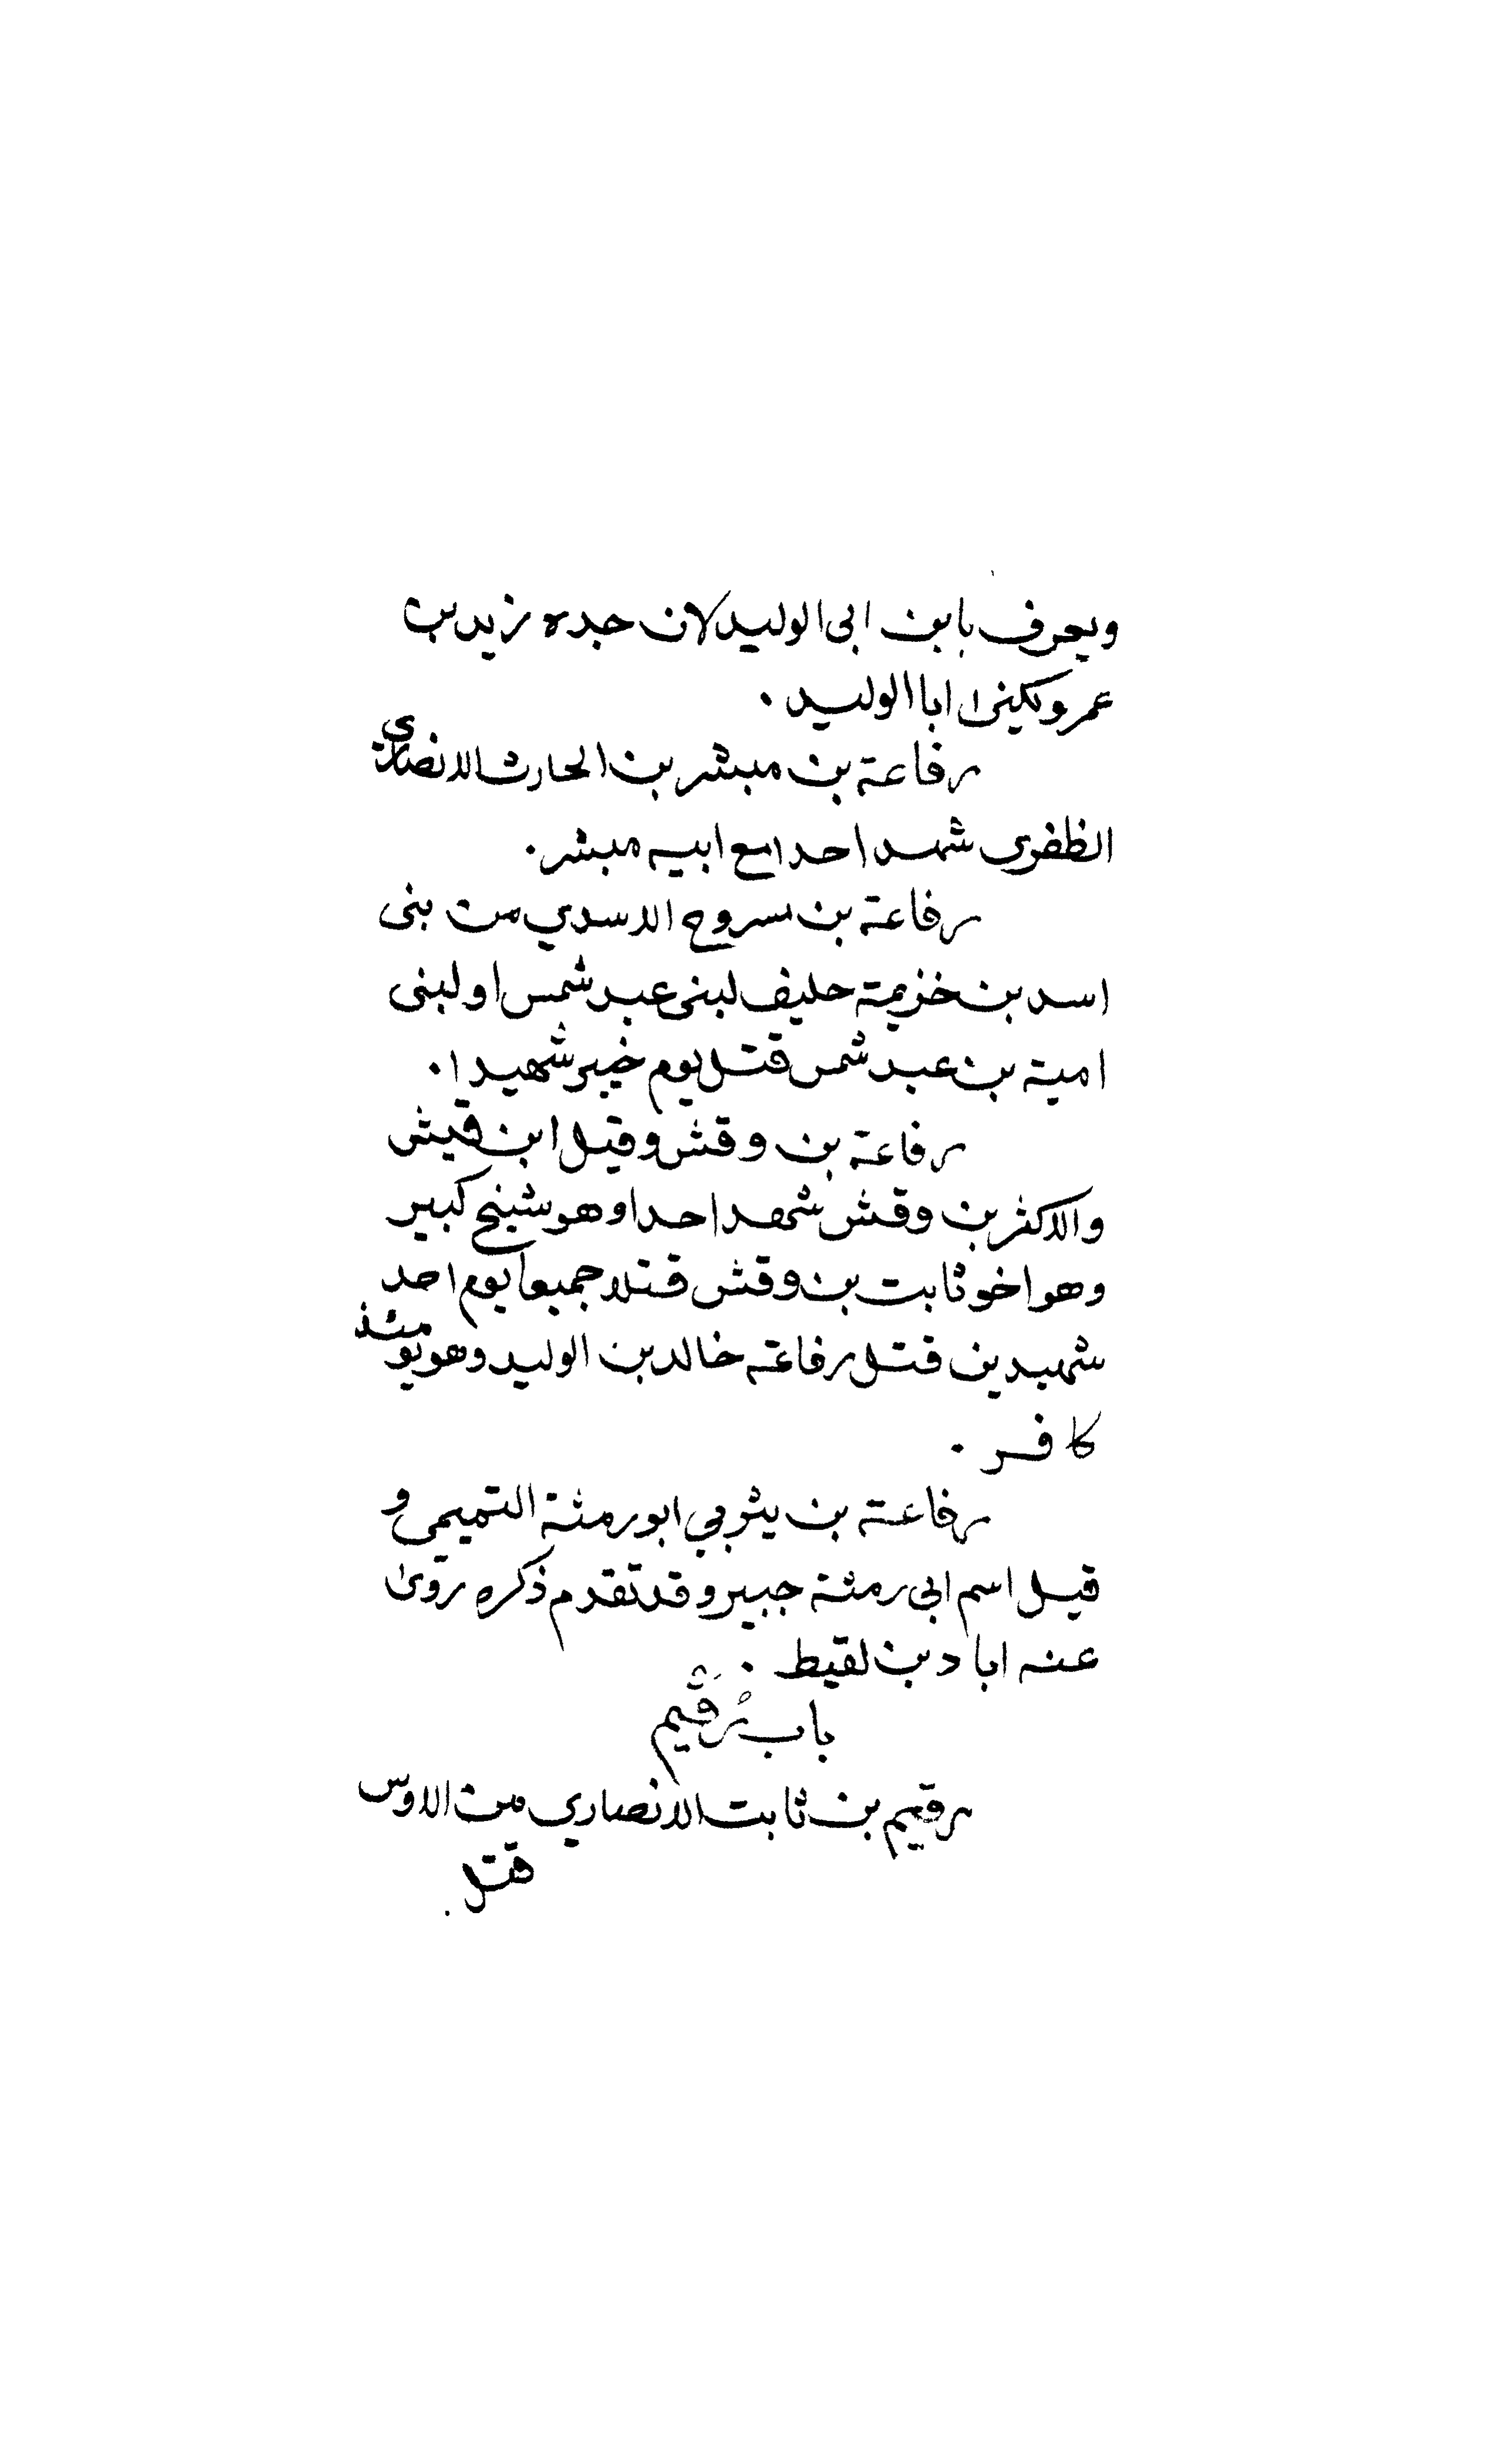 ويعرف بابن ابى الوليد لان جده زيد بن
عمرو يكنى ابا الوليد .
رفاعة بن مبشر بن الحارث الانصارى
الظفرى شهد احدا مع ابيه مبشر .
رفاعة بن مسروح الاسدي من بنى
اسد بن خزيمة حليف لبنى عبد شمس او لبنى
امية بن عبد شمس قتل يوم خيبر شهيدا .
رفاعة بن وقش وقيل ابن قيش
والاكثر بن وقش شهد احدا وهو شيخ كبير
وهو اخو ثابت بن وقش قتلا جميعا يوم احد
شهيدين قتل رفاعة خالد بن الوليد وهو يومئذ
كافر .
رفاعة بن يثربي ابو رمثة التميمى و
قيل اسم ابى رمثة جبير وقد تقدم ذكره روى
عنه اباد بن لقيط .
باب رُقَيم
رقيم بن ثابت الانصاري من الاوس
قتل